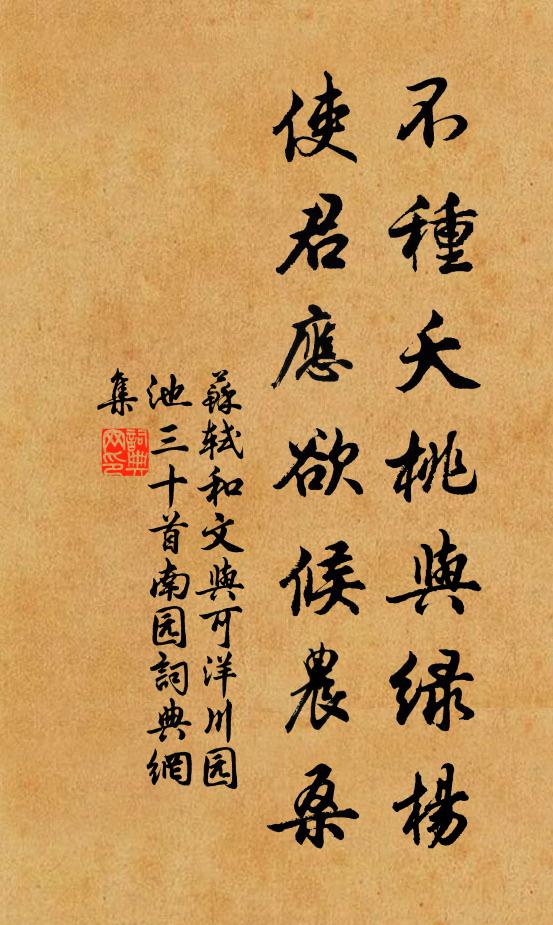 不種夭桃與緑楊
使君應欲候農桑
蘇軾和文與可洋川园
池三十首南园詞典網
集
詞典
网印